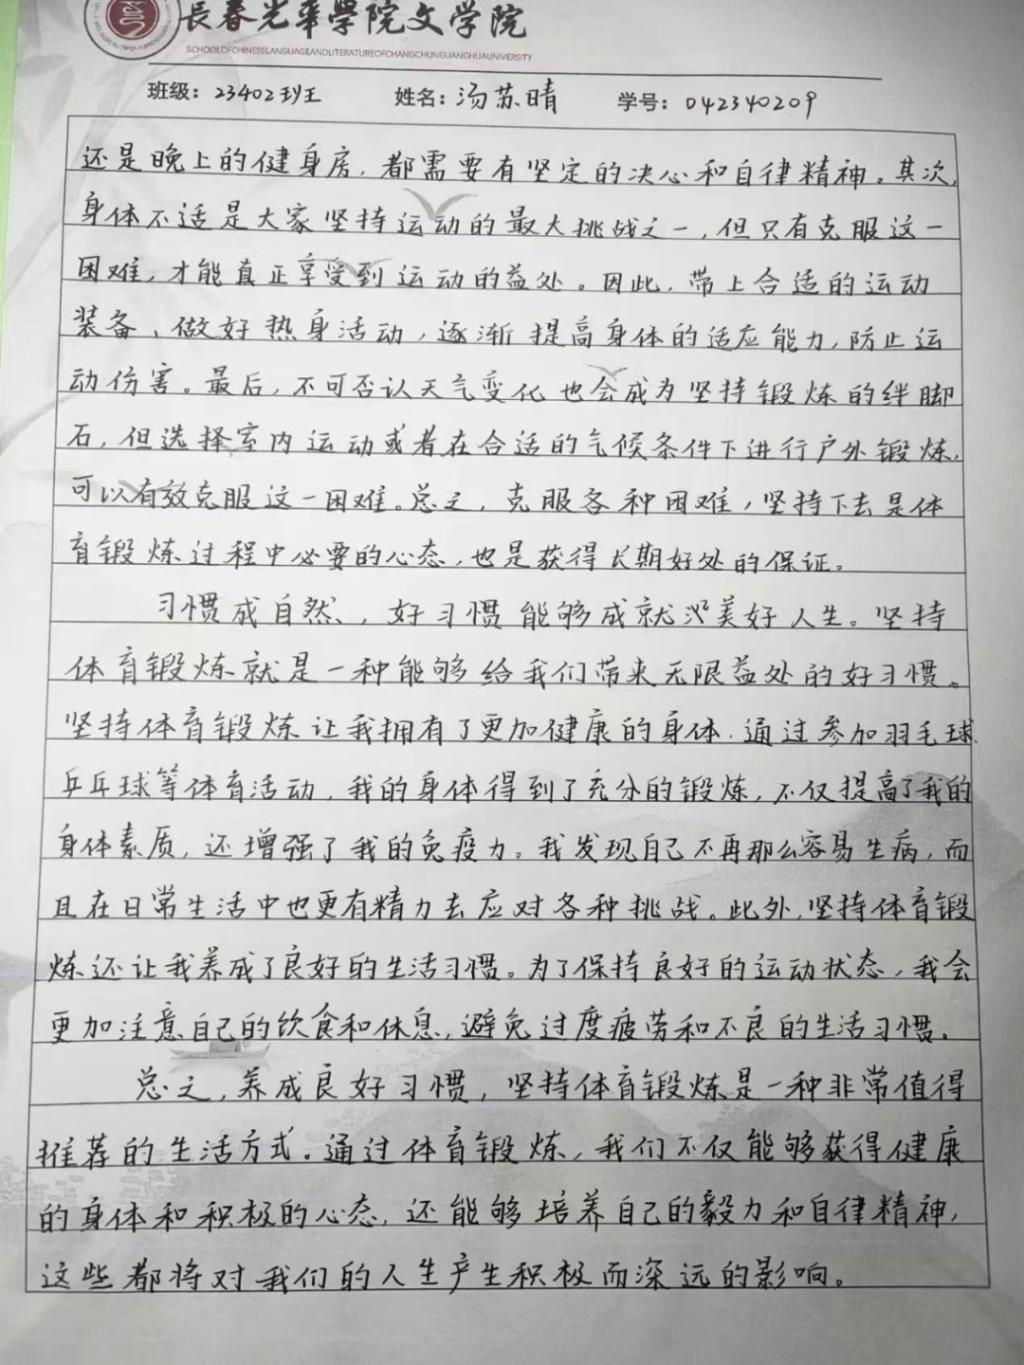 長春光華學院文学院
SCHOOLOFCHINESELANGUAGEANDLITERATUREOFCHANGCHUNGUANGHUAUNIVERSITY
班级：23402班 姓名：汤苏晴 学号：042340209
还是晚上的健身房，都需要有坚定的决心和自律精神。其次，
身体不适是大家坚持运动的最大挑战之一，但只有克服这一
困难，才能真正享受到运动的益处。因此，带上合适的运动
装备、做好热身活动，逐渐提高身体的适应能力，防止运
动伤害。最后，不可否认天气变化也会成为坚持锻炼的绊脚
石，但选择室内运动或者在合适的气候条件下进行户外锻炼，
可以有效克服这一困难。总之，克服各种困难，坚持下去是体
育锻炼过程中必要的心态，也是获得长期好处的保证。
习惯成自然，好习惯能够成就美好人生。坚持
体育锻炼就是一种能够给我们带来无限益处的好习惯。
坚持体育锻炼让我拥有了更加健康的身体．通过参加羽毛球、
乒乓球等体育活动，我的身体得到了充分的锻炼，不仅提高了我的
身体素质，还增强了我的免疫力。我发现自己不再那么容易生病，而
且在日常生活中也更有精力去应对各种挑战。此外，坚持体育锻
炼还让我养成了良好的生活习惯。为了保持良好的运动状态，我会
更加注意自己的饮食和休息，避免过度疲劳和不良的生活习惯。
总之，养成良好习惯，坚持体育锻炼是一种非常值得
推荐的生活方式．通过体育锻炼，我们不仅能够获得健康
的身体和积极的心态，还能够培养自己的毅力和自律精神，
这些都将对我们的人生产生积极而深远的影响。